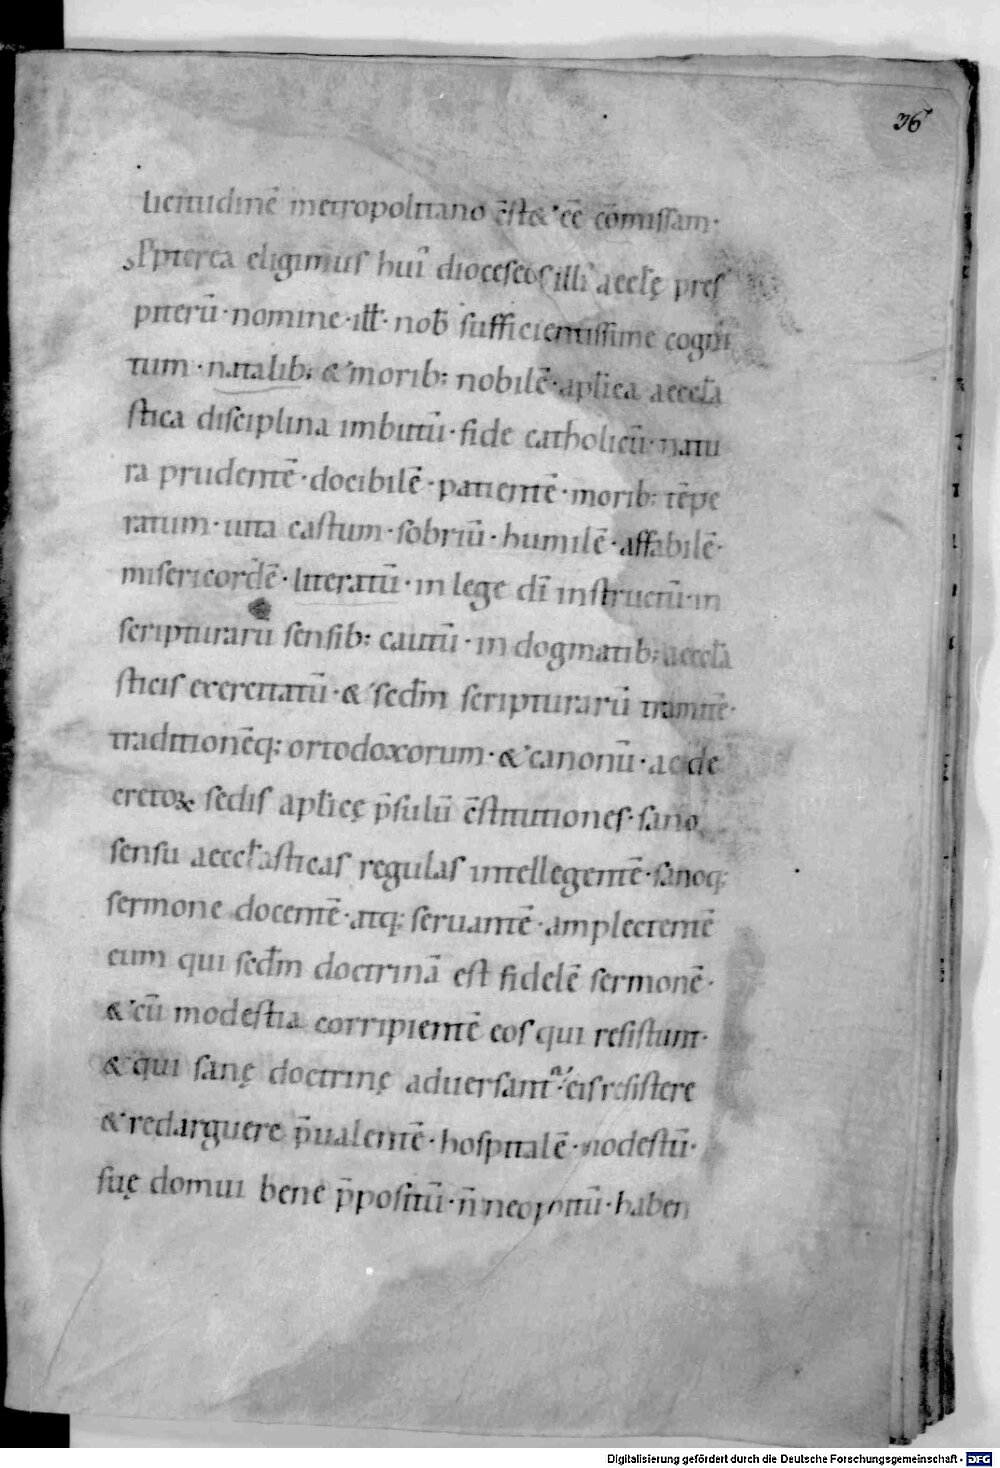 36
licitudinē metropolitano c̄st& eē cōmissam·
P̱pterea eligimus hui' dioceseos illi' aeccl̄ę pres
piterū· nomine· ill̄· nob̄ sufficientissime cogni
tum· natalib; & morib; nobilē· apl̄ica aeccl̄a
stica disciplina imbutū· fide catholicū· natu
ra prudentē· docibilē· patientē· morib; tēpe
ratum· uita castum· sobriū· humilē· affabilē·
misericordē· literatū· in lege dī instructū· in
scripturarū sensib; cautū· in dogmatib; aeccl̄a
sticis exercitatū· & secd̄m scripturarū tramitē·
traditionēq; ortodoxorum· & canonū· ac de
cretoꝝ sedis apl̄icę p̄sulū c̄stitutiones· sano
sensu aeccl̄asticas regulas intellegentē· sanoq;
sermone docentē· atq; seruantē· amplectentē
eum qui secd̄m doctrinā est fidelē sermonē·
& cū modestia corripientē eos qui resistunt·
& qui sanę doctrinę aduersant᷑ eis resistere
& redarguere p̄ualentē· hospitalē· modestū·
suę domui bene p̄positū· n̄ neophitū· haben
Digitalisierung gefördert durch die Deutsche Forschungsgemeinschaft - DFG